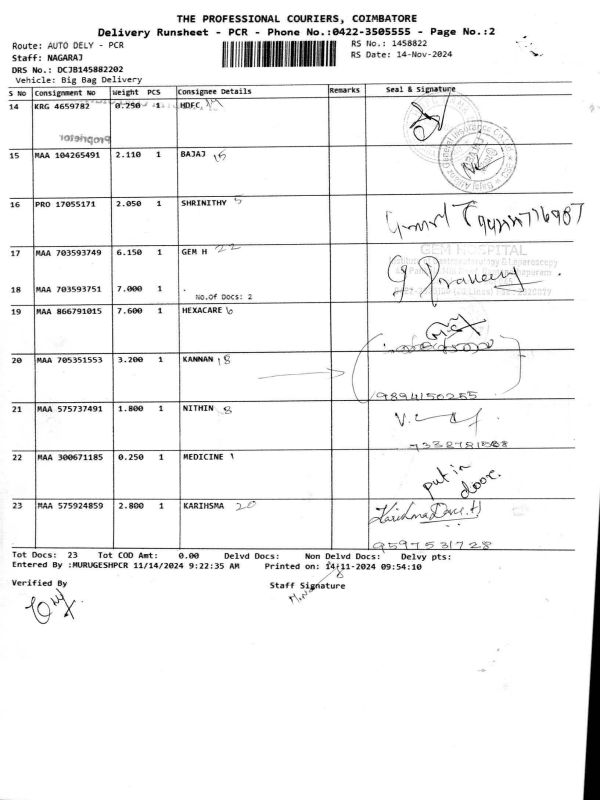 THE PROFESSIONAL COURIERS, COIMBATORE
Delivery Runsheet - PCR - Phone No.:0422-3505555 - Page No.:2
Route: AUTO DELY - PCR RS No.: 1458822
Staff: NAGARAJ RS Date: 14-Nov-2024
DRS No.: DCJB145882202
Vehicle: Big Bag Delivery
S No Consignment No Weight PCS Consignee Details Remarks Seal & Signature
14 KRG 4659782 0.250 1 HDFC
Proprietor
15 MAA 104265491 2.110 1 BAJAJ 15
16 PRO 17055171 2.050 1 SHRINITHY 5
17 MAA 703593749 6.150 1 GEM H 22
GEM HOSPITAL
18 MAA 703593751 7.000 1 .
No.Of Docs: 2
19 MAA 866791015 7.600 1 HEXACARE 6
20 MAA 705351553 3.200 1 KANNAN 18
9894150255
21 MAA 575737491 1.800 1 NITHIN 8
22 MAA 300671185 0.250 1 MEDICINE 1
put in
door.
23 MAA 575924859 2.800 1 KARIHSMA 20
9597531728
Tot Docs: 23 Tot COD Amt: 0.00 Delvd Docs: Non Delvd Docs: Delvy pts:
Entered By :MURUGESHPCR 11/14/2024 9:22:35 AM Printed on: 14-11-2024 09:54:10
Verified By Staff Signature